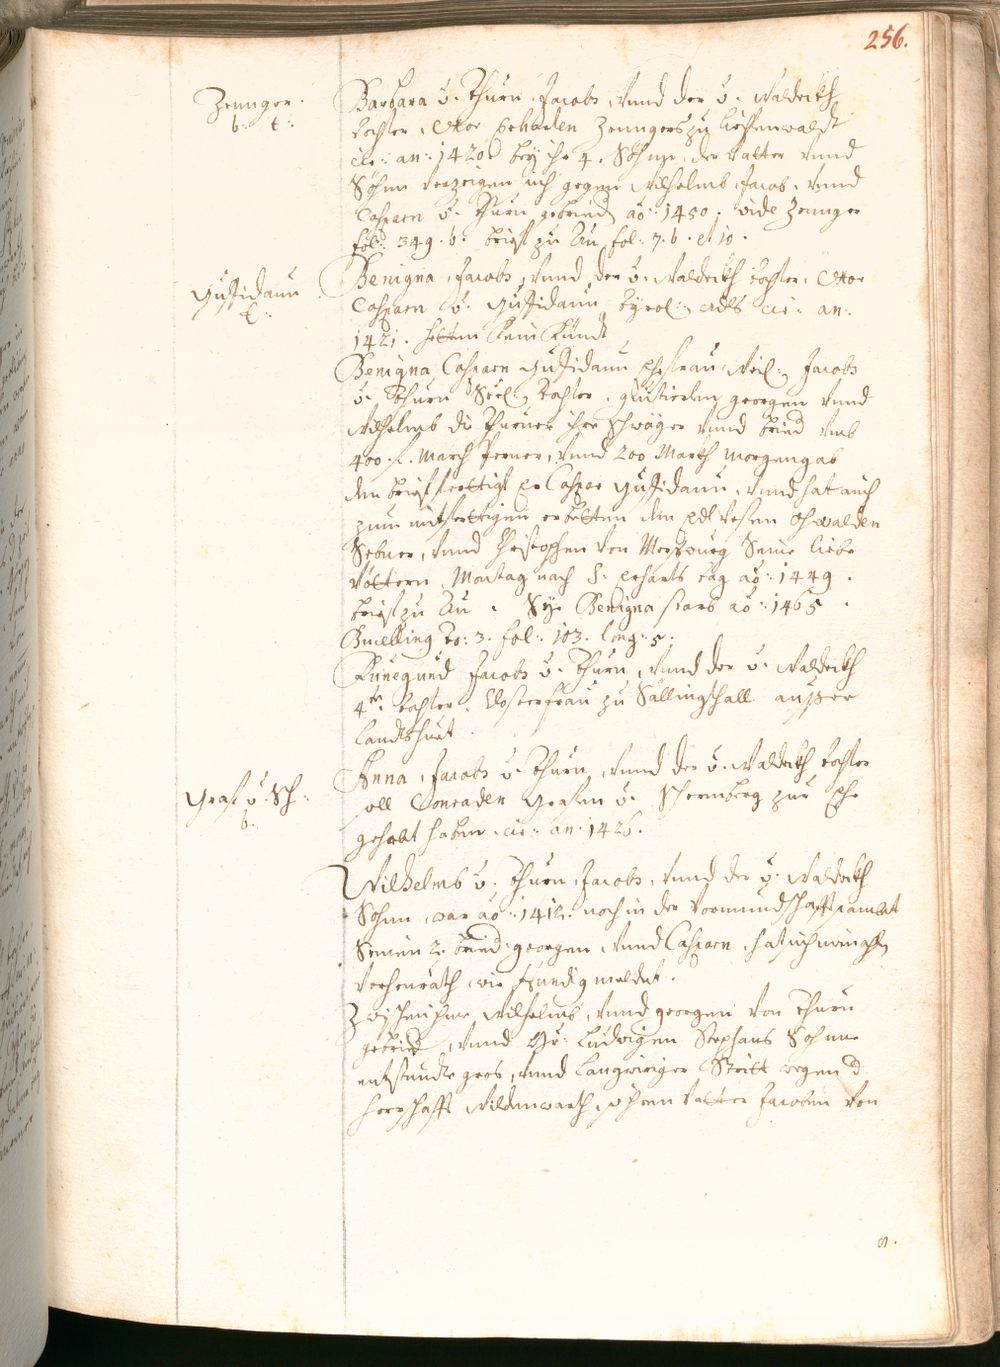 256.
Zennger.
b. t.
Barbara v. Thurn, Jacobs, vnnd der v. Waldeckh
tochter, Vxor Erharden Zenngers zu
cir: an: 1420. bey ihr 4. Söhne, der vatter vnnd
Söhne verzeigen sich gegen Wilhelmb, Jacob, vnnd
Casparn v. Thurn gebried. ao: 1450. vide Zennger
fol: 349. b. brief zu Au fol: 7. b. et 10.
Gufidaun
t.
Benigna, Jacobs, vnnd der v. Waldeckh tochter, Vxor
Casparn v. Gufidaun, tyrol: Adls cir: an:
1421. hetten kein Kindt
Benigna Casparn Gufidaun ehefrau, Weil: Jacobs
v. Thurn Seel: tochter, quitierdten georgen vnnd
Wilhelmb die Thurner ihre Schwäger vnnd bried vmb
400. f. March Perner, vnnd 200 Markh morgengab
den brief fertigt er Caspar Gufidaun, vnnd hat auch
zum mitfertigen erbetten den Edl Vesten Oswalden
Sebner, vnnd Christophen von Seine liebe
vöttern, Montag nach S: Erharts tag ao: 1449.
brief zu Au. Sye Benigna starb ao: 1465.
Bucelling to: 3. fol: 103. long: 5.
Künegund Jacobs v. Thurn, vnnd der v. Waldeckh
4te. tochter, Closterfrau zu Sällingthall ausser
Landtshuet.
Graf v. Sch:
b.
Anna, Jacobs v. Thurn, vnnd der v. Waldeckh tochter
soll Conraden Grafen v. Schermberg zur Ehe
gehabt haben. cir: an: 1426.
Wilhelmb v. Thurn, Jacobs, vnnd der v. Waldeckh
Sohn, war ao: 1412. noch in der Vormundschafft sambt
Seinen 2. bried: georgen, vnnd Casparn, hat sich
verheürath, wie meldet.
Zwischen ihme Wilhelmb, vnnd georgen von Thurn
gebried, vnnd Hr: Ludwigen Stephans Sohne
entstundte gros, vnnd langwiriger Stritt wegen d
herrschafft Wildenwarth, so ihren Vatter Jacoben von